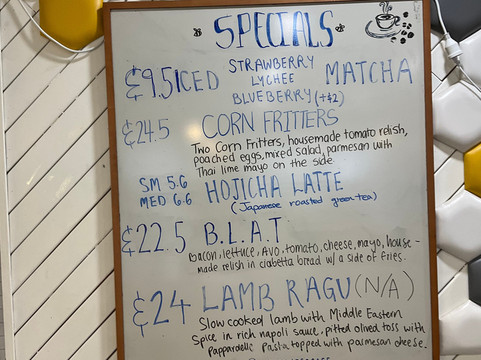 SPECIALS
STRAWBERRY
9.5 ICED LYCHEE MATCHA
BLUEBERRY (+$2)
24.5 CORN FRITTERS
Two Corn Fritters, housemade tomato relish,
poached eggs, mixed salad, parmesan with
Thai lime mayo on the side
SM 5.6 HOJICHA LATTE
MED 6.6 (Japanese roasted green tea)
22.5 B.L.A.T
Bacon, lettuce, Avo, tomato, cheese, mayo, house-
made relish in ciabetta bread w/ a side of fries.
24 LAMB RAGU (N/A)
Slow cooked lamb with Middle Eastern
Spice in rich napoli sauce, pitted olined toss with
Pappardelle Pasta topped with parmesan cheese.